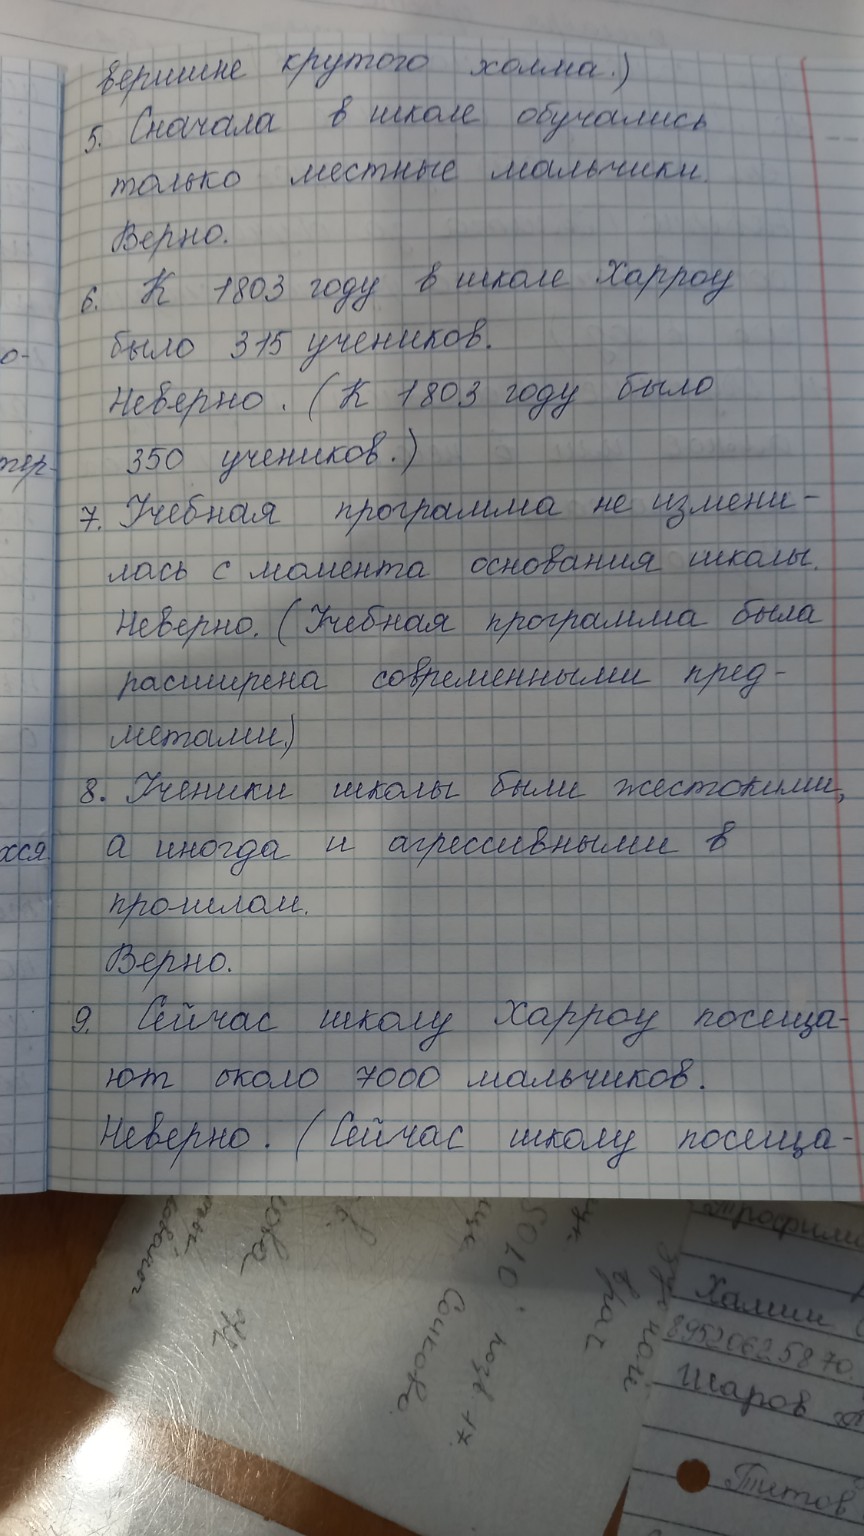 вершине крутого холма.)
5. Сначала в школе обучались
только местные мальчики.
Верно.
6. К 1803 году в школе Харроу
было 315 учеников.
Неверно. (К 1803 году было
350 учеников.)
7. Учебная программа не измени-
лась с момента основания школы.
Неверно. (Учебная программа была
расширена современными пред-
метами.)
8. Ученики школы были жестокими,
а иногда и агрессивными в
прошлом.
Верно.
9. Сейчас школу Харроу посеща-
ют около 7000 мальчиков.
Неверно. (Сейчас школу посеща-
о-
тер-
хся
Хамин
89520625870
Шаров
Титов